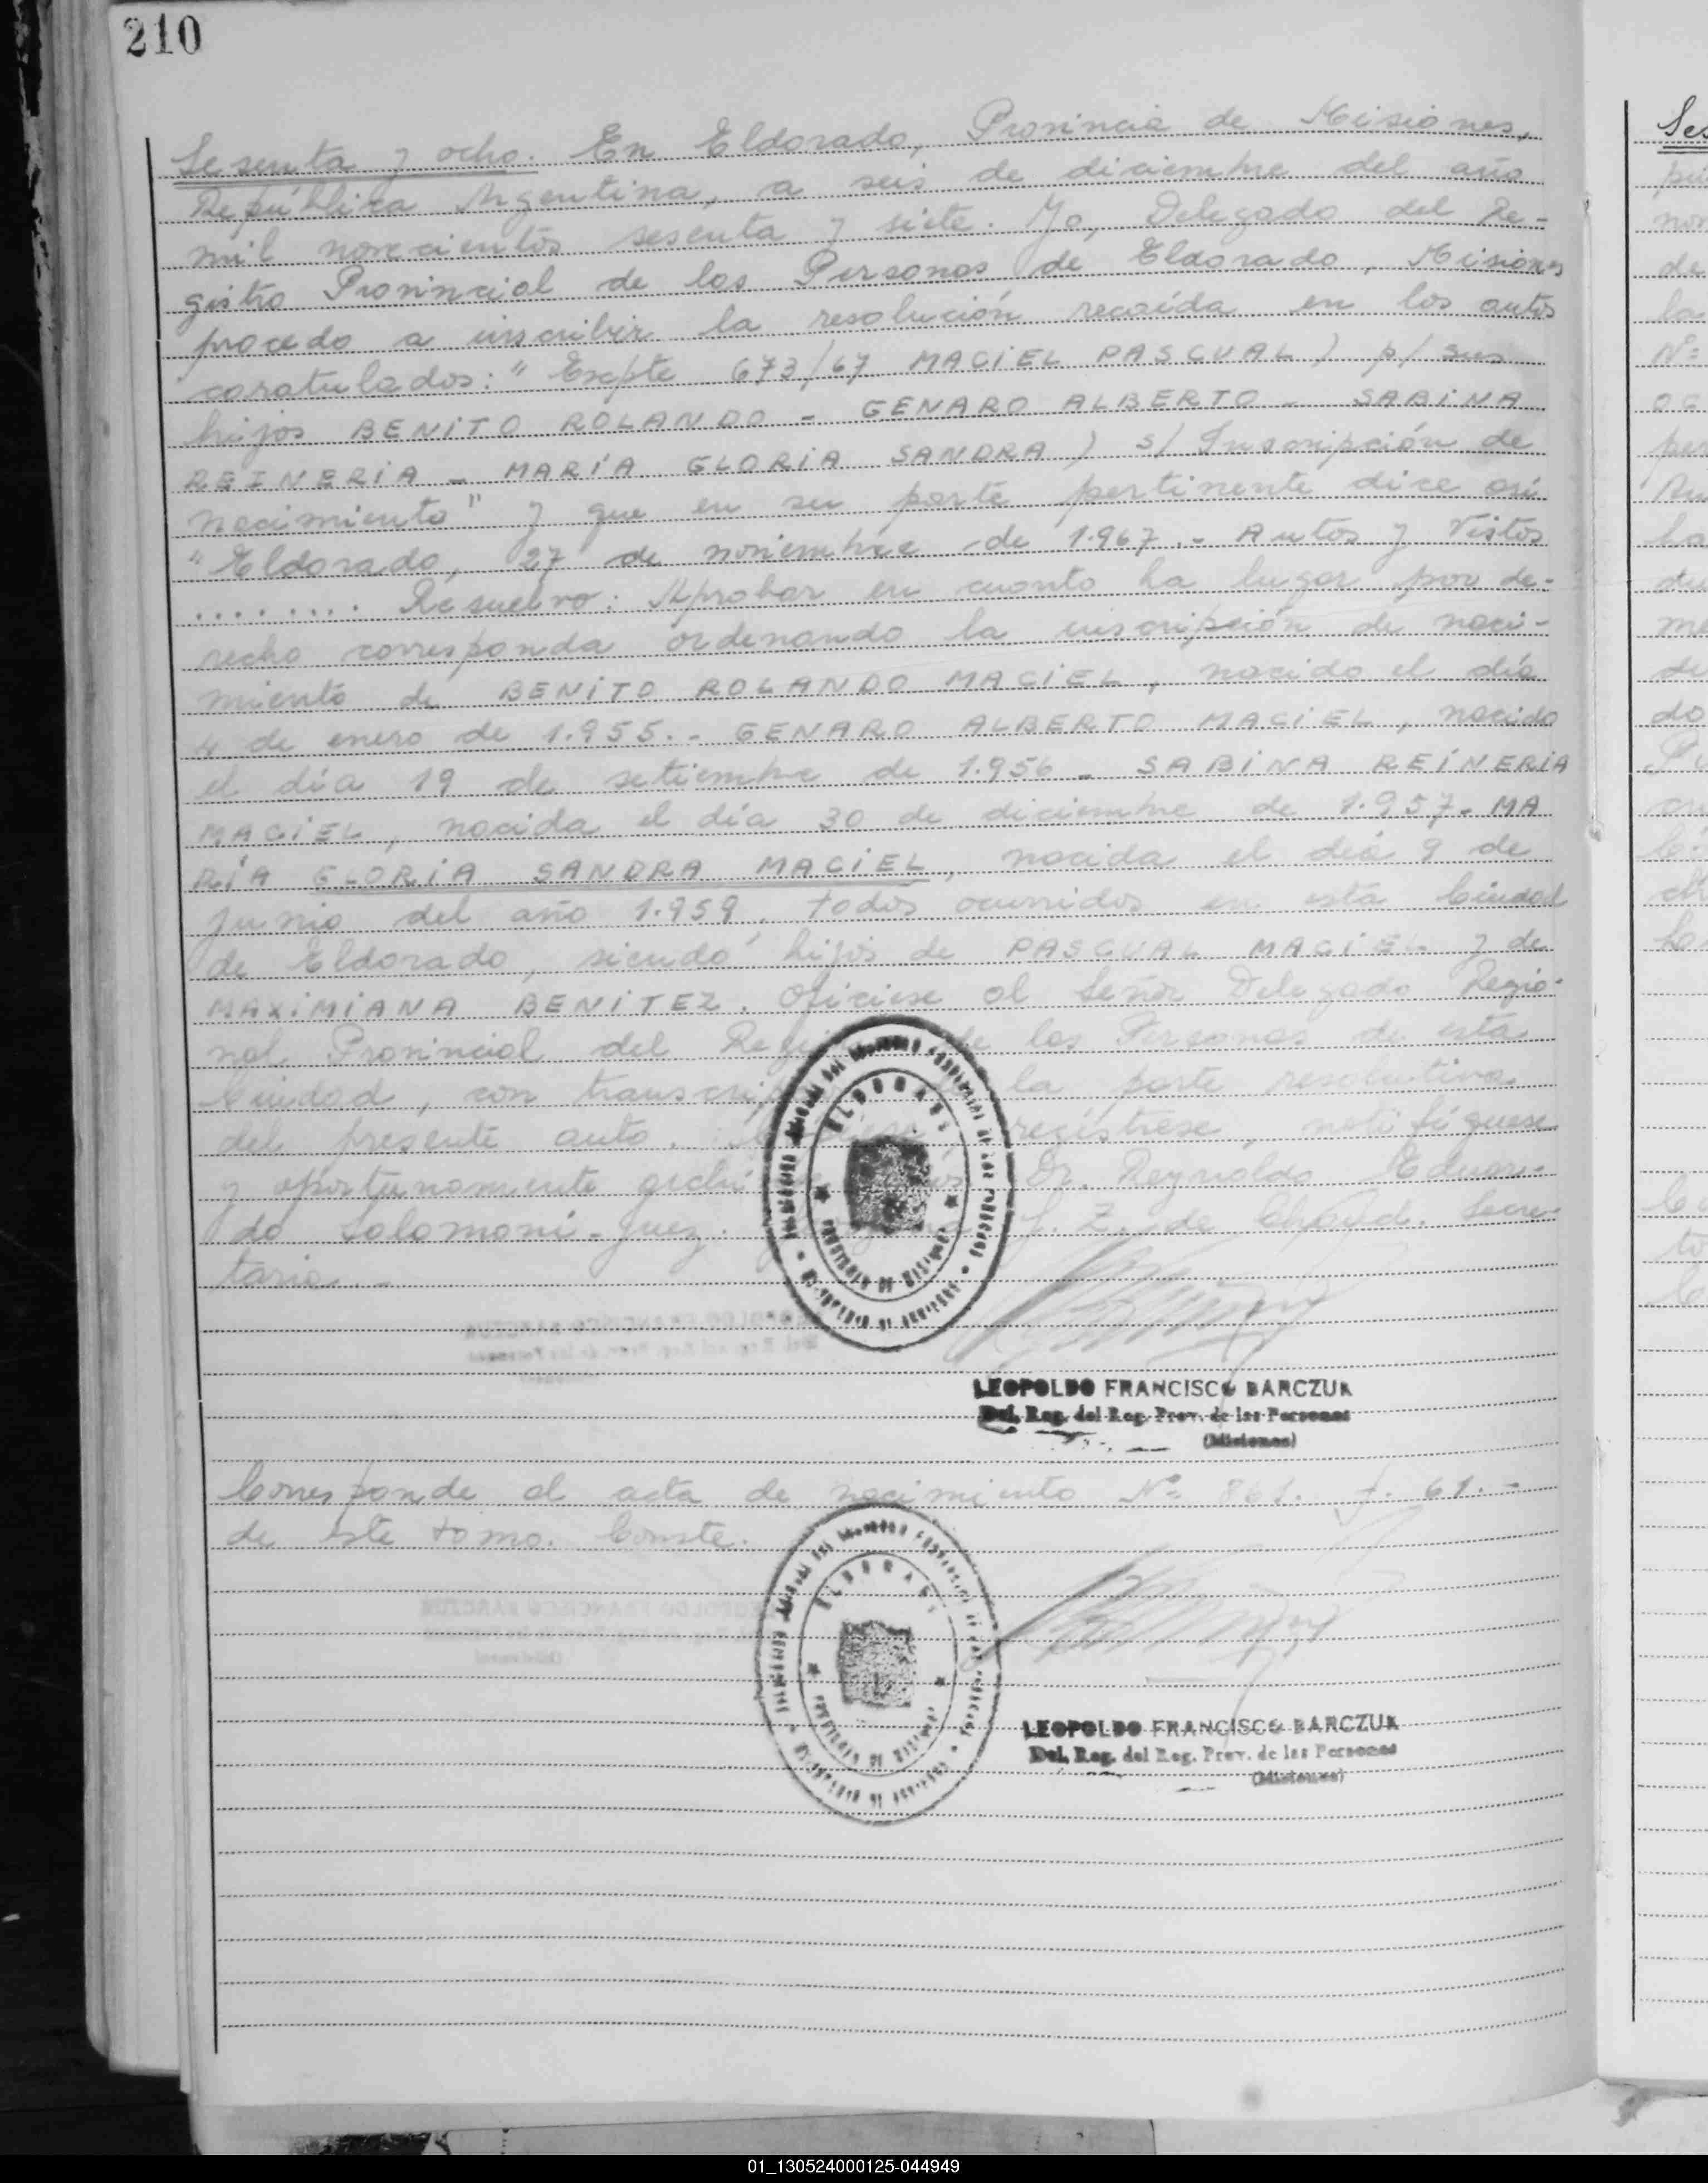 210
Sesenta y ocho. En Eldorado, Provincia de Misiones,
República Argentina, a seis de diciembre del año
mil novecientos sesenta y siete. Yo, Delegado del Re-
gistro Provincial de las Personas de Eldorado, Misiones
procedo a inscribir la resolución recaída en los autos
caratulados: "Expte 673/67 MACIEL PASCUAL) p/ sus
hijos BENITO ROLANDO - GENARO ALBERTO - SABINA
REINERIA - MARÍA GLORIA SANDRA) s/ Inscripción de
nacimiento" y que en su parte pertinente dice así
"Eldorado, 27 de noviembre de 1.967.- Autos y Vistos
......... Resuelvo: Aprobar en cuanto ha lugar por de-
recho corresponda ordenando la inscripción de naci-
miento de BENITO ROLANDO MACIEL, nacido el día
4 de enero de 1.955.- GENARO ALBERTO MACIEL, nacido
el día 19 de setiembre de 1.956 - SABINA REINERIA
MACIEL, nacida el día 30 de diciembre de 1.957. MA
RÍA GLORIA SANDRA MACIEL, nacida el día 9 de
junio del año 1.959, todos ocurridos en esta Ciudad
de Eldorado, siendo hijos de PASCUAL MACIEL y de
MAXIMIANA BENITEZ. Ofíciese al Señor Delegado Regio-
nal Provincial del de las Personas de esta
Ciudad, con la parte resolutiva
del presente auto. regístrese, notifíquese
y oportunamente Dr. Reynaldo Eduar-
do Solomoni - Juez. Z. de Secre-
taria.-
ELDORADO
PROVINCIA DE MISIONES
LEOPOLDO FRANCISCO BARCZUK
Del. Reg. del Reg. Prov. de las Personas
(Misiones)
Corresponde al acta de nacimiento Nº 861. f. 61.-
de este tomo. Conste.
ELDORADO
PROVINCIA DE MISIONES
LEOPOLDO FRANCISCO BARCZUK
Del. Reg. del Reg. Prov. de las Personas
(Misiones)
01_130524000125-044949